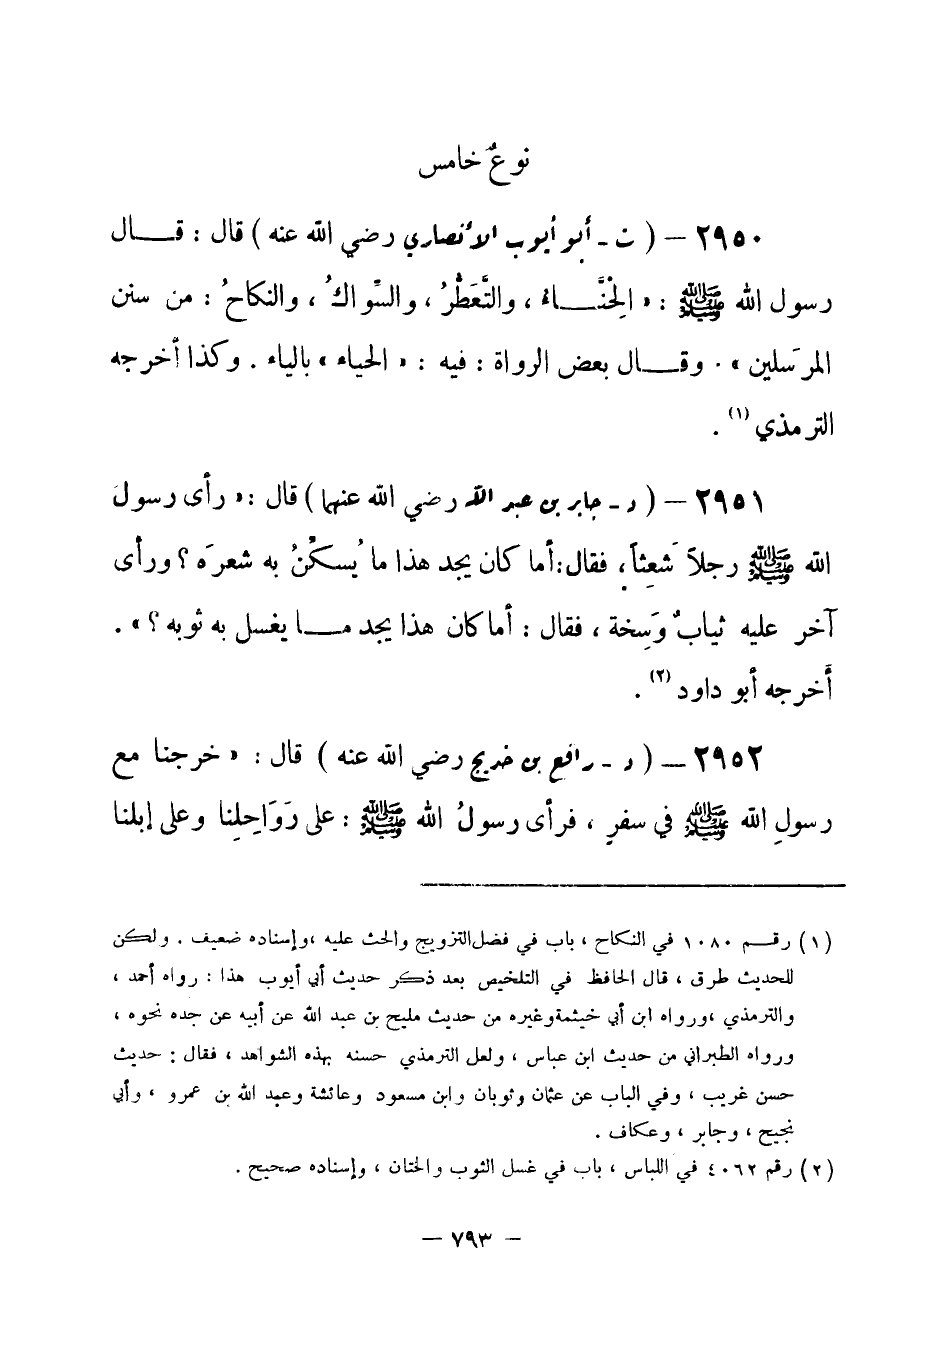 نوعٌ خامس
٢٩٥٠ – ( ت - أبو أيوب الأنصاري رضي الله عنه ) قال : قـــال
رسول الله ﷺ : « الْحِنَّـــاءُ ، والتَّعَطُّرُ ، والسِّواكُ ، والنكاحُ : من سنن
المرسَلين » . وقـــال بعض الرواة : فيه : « الحياء » بالياء . وكذا أخرجه
الترمذي (١) .
٢٩٥١ – ( د - جابر بن عبد الله رضي الله عنهما ) قال : « رأى رسولَ
الله ﷺ رجلاً شَعِثاً ، فقال : أما كان يجد هذا ما يُسكِّنُ به شعرَه ؟ ورأى
آخر عليه ثيابٌ وَسِخة ، فقال : أما كان هذا يجد مـــا يغسل به ثوبه ؟ » .
أخرجه أبو داود (٢) .
٢٩٥٢ – ( د - رافع بن خديج رضي الله عنه ) قال : « خرجنا مع
رسولِ الله ﷺ في سفرٍ ، فرأى رسولُ الله ﷺ : على رَوَاحِلِنا وعلى إبلنا
(١) رقـــم ١٠٨٠ في النكاح ، باب في فضل التزويج والحث عليه ، وإسناده ضعيف . ولكن
للحديث طرق ، قال الحافظ في التلخيص بعد ذكر حديث أبي أيوب هذا : رواه أحمد ،
والترمذي ، ورواه ابن أبي خيثمة وغيره من حديث مليح بن عبد الله عن أبيه عن جده نحوه ،
ورواه الطبراني من حديث ابن عباس ، ولعل الترمذي حسنه بهذه الشواهد ، فقال : حديث
حسن غريب ، وفي الباب عن عثمان وثوبان وابن مسعود وعائشة وعبد الله بن عمرو ، وأبي
نجيح ، وجابر ، وعكاف .
(٢) رقم ٤٠٦٢ في اللباس ، باب في غسل الثوب والختان ، وإسناده صحيح .
– ٧٩٣ –